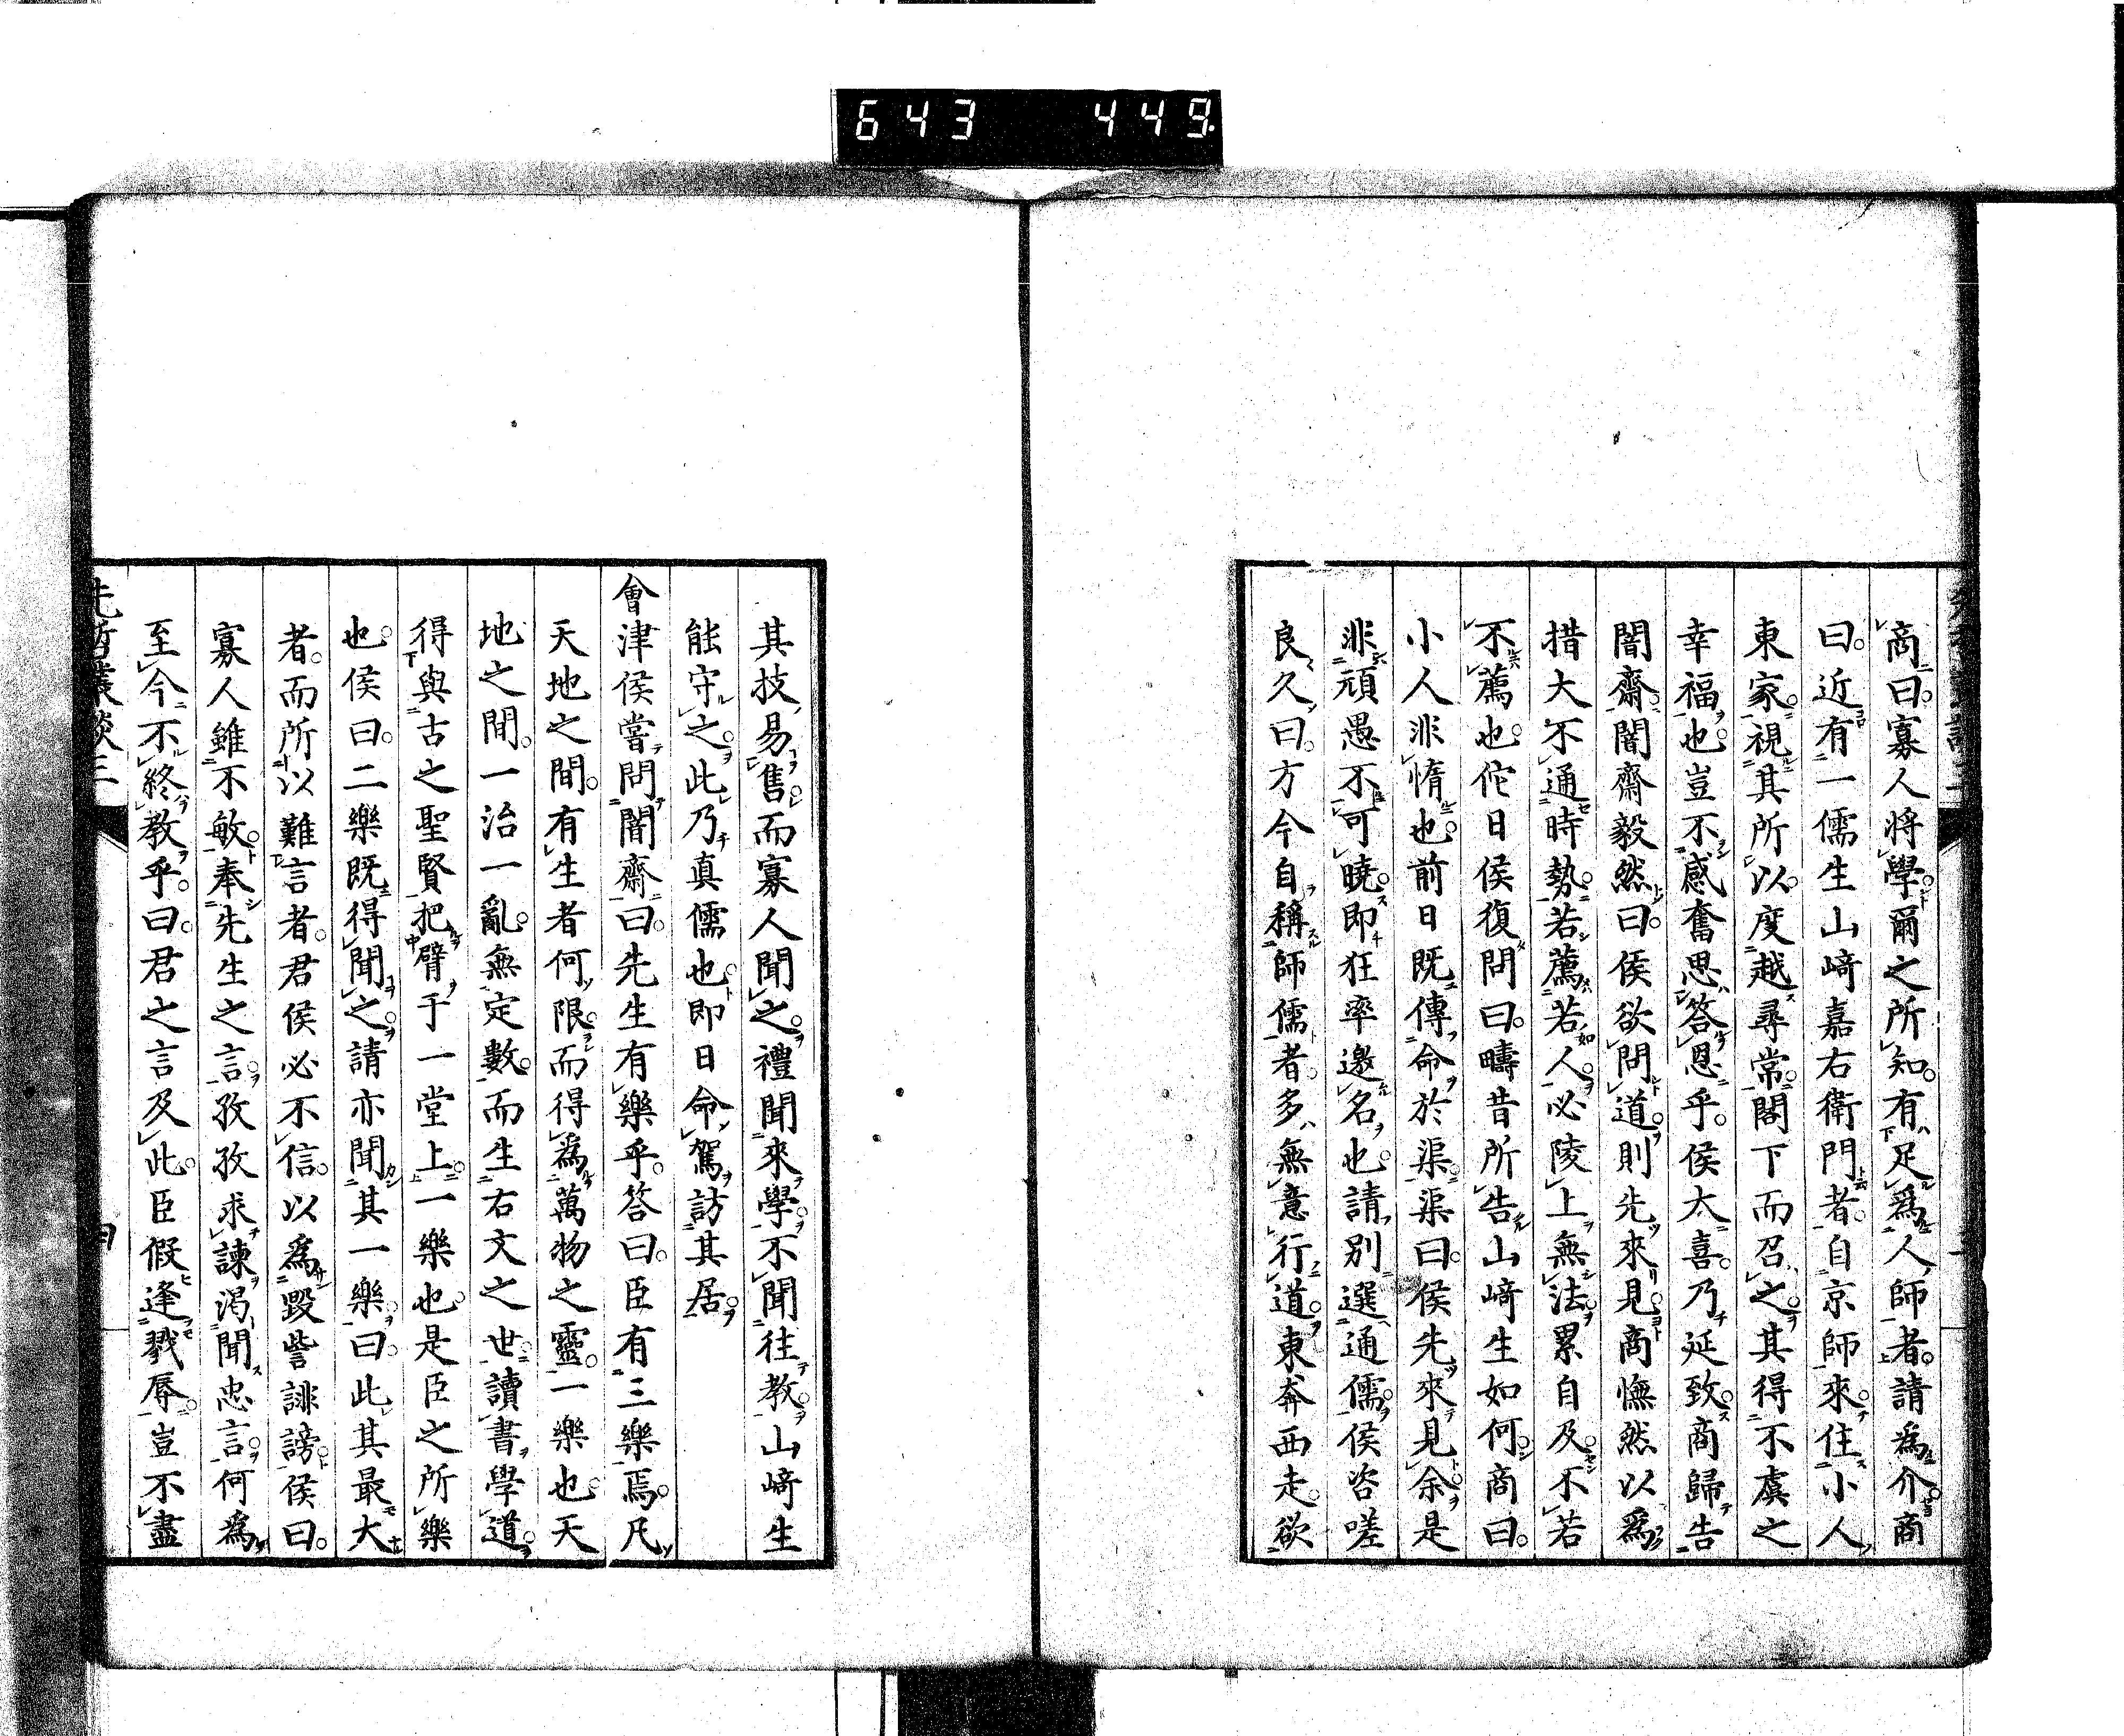 643 449
商曰。寡人將學爾之所知。有足爲人師者。請爲介。商
曰。近有一儒生山﨑嘉右衛門者。自京師來住。小人
東家。視其所以。度越尋常。閤下而召之。其得不虞之
幸福也。豈不感奮思答恩乎。侯大喜。乃延致。商歸告
闇齋。闇齋毅然曰。侯欲問道。則先來見。商憮然以爲
措大不通時勢。若薦若人。必陵上無法。累自及。不若
不薦也。佗日侯復問曰。疇昔所告山﨑生如何。商曰。
小人非惰也。前日既傳命於渠。渠曰。侯先來見余。是
非頑愚不可曉。即狂率邀名也。請別選通儒。侯咨嗟
良久曰。方今自稱師儒者。多無意行道。東奔西走。欲
其技易售。而寡人聞之。禮聞來學。不聞往教。山﨑生
能守之。此乃真儒也。即日命駕訪其居。
會津侯嘗問闇齋曰。先生有樂乎。答曰。臣有三樂焉。凡
天地之間。有生者何限。而得爲萬物之靈。一樂也。天
地之間。一治一亂。無定數。而生右文之世。讀書學道。
得與古之聖賢把臂于一堂上。一樂也。是臣之所樂
也。侯曰。二樂既得聞之。請亦聞其一樂。曰。此其最大
者。而所以難言者。君侯必不信。以爲毀訾誹謗。侯曰。
寡人雖不敏。奉先生之言。孜孜求諫。渇聞忠言。何爲
至今不終教乎。曰。君之言及此。臣假逢戮辱。豈不盡
先哲叢談三